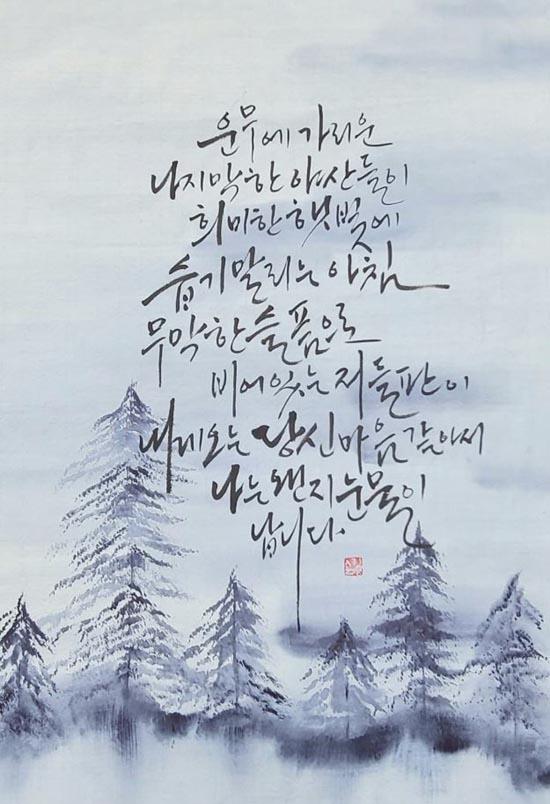 운무에 가리운
나지막한 야산들이
희미한 햇빛에
습기말리는 아침
무막한 슬픔으로
비어있는 저 들판이
내게오는 당신마음 같아서
나는 왠지 눈물이
납니다.